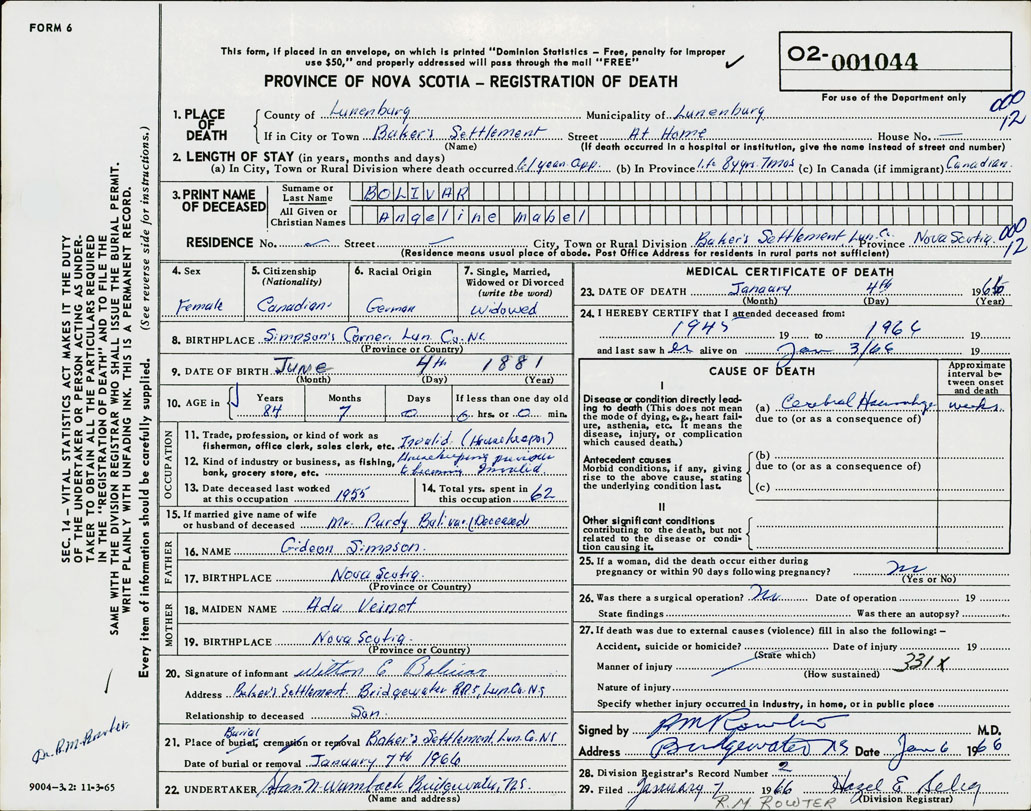 FORM 6
This form, if placed in an envelope, on which is printed "Dominion Statistics – Free, penalty for improper
use $50," and properly addressed will pass through the mail "FREE"
PROVINCE OF NOVA SCOTIA – REGISTRATION OF DEATH
02-001044
For use of the Department only
000
12
1. PLACE OF DEATH
County of Lunenburg Municipality of Lunenburg
If in City or Town Baker's Settlement Street At Home House No. —
(Name) (If death occurred in a hospital or institution, give the name instead of street and number)
2. LENGTH OF STAY (in years, months and days)
(a) In City, Town or Rural Division where death occurred 61 year app. (b) In Province life 84yrs. 7mos (c) In Canada (if immigrant) Canadian.
3. PRINT NAME OF DECEASED
Surname or Last Name BOLIVAR
All Given or Christian Names Angeline mabel
RESIDENCE No. Street City, Town or Rural Division Baker's Settlement Lun.C. Province Nova Scotia.
000
12
(Residence means usual place of abode. Post Office Address for residents in rural parts not sufficient)
4. Sex
Female
5. Citizenship
(Nationality)
Canadian
6. Racial Origin
German
7. Single, Married, Widowed or Divorced
(write the word)
Widowed
8. BIRTHPLACE Simpson's Corner Lun. Co. NS
(Province or Country)
9. DATE OF BIRTH JUNE 4th 1881
(Month) (Day) (Year)
10. AGE in Years Months Days If less than one day old
84 7 0 hrs. or 0 min.
OCCUPATION
11. Trade, profession, or kind of work as
fisherman, office clerk, sales clerk, etc. Invalid (Housekeeper)
12. Kind of industry or business, as fishing, Housekeeping previous
bank, grocery store, etc. to becoming Invalid
13. Date deceased last worked
at this occupation 1955
14. Total yrs. spent in
this occupation 62
15. If married give name of wife
or husband of deceased Mr. Purdy Bolivar (Deceased)
FATHER
16. NAME Gideon Simpson.
17. BIRTHPLACE Nova Scotia.
(Province or Country)
MOTHER
18. MAIDEN NAME Ada Veinot
19. BIRTHPLACE Nova Scotia.
(Province or Country)
20. Signature of informant Wilton E Bolivar
Address Baker's Settlement Bridgewater RR5, Lun.Co. NS
Relationship to deceased Son.
Burial
21. Place of burial, cremation or removal Baker's Settlement Lun Co. NS
Date of burial or removal January 7th 1966
22. UNDERTAKER Bridgewater, N.S.
(Name and address)
MEDICAL CERTIFICATE OF DEATH
23. DATE OF DEATH January 4th 1966
(Month) (Day) (Year)
24. I HEREBY CERTIFY that I attended deceased from:
1945 19 to 1966 19
and last saw her alive on Jan 3/66 19
CAUSE OF DEATH
Approximate interval between onset and death
I
Disease or condition directly leading to death (This does not
mean the mode of dying, e.g., heart failure, asthenia, etc. It means the
disease, injury, or complication
which caused death.)
(a) Cerebral Haemorrhage weeks
due to (or as a consequence of)
Antecedent causes
Morbid conditions, if any, giving
rise to the above cause, stating
the underlying condition last.
(b)
due to (or as a consequence of)
(c)
II
Other significant conditions
contributing to the death, but not
related to the disease or condition causing it.
25. If a woman, did the death occur either during
pregnancy or within 90 days following pregnancy? no
(Yes or No)
26. Was there a surgical operation? no Date of operation 19
State findings Was there an autopsy?
27. If death was due to external causes (violence) fill in also the following:–
Accident, suicide or homicide? Date of injury 19
(State which)
331X
Manner of injury
(How sustained)
Nature of injury
Specify whether injury occurred in industry, in home, or in public place
Signed by RM Rowter M.D.
Address Bridgewater NS Date Jan 6 1966
28. Division Registrar's Record Number 2
29. Filed January 7 1966 Hazel E
(Division Registrar)
R.M ROWTER
SEC. 14 – VITAL STATISTICS ACT MAKES IT THE DUTY
OF THE UNDERTAKER OR PERSON ACTING AS UNDER-
TAKER TO OBTAIN ALL THE PARTICULARS REQUIRED
IN THE "REGISTRATION OF DEATH" AND TO FILE THE
SAME WITH THE DIVISION REGISTRAR WHO SHALL ISSUE THE BURIAL PERMIT.
WRITE PLAINLY WITH UNFADING INK. THIS IS A PERMANENT RECORD.
Every item of information should be carefully supplied. (See reverse side for instructions.)
Dr. R.M. Rowter
9004–3.2: 11-3-65